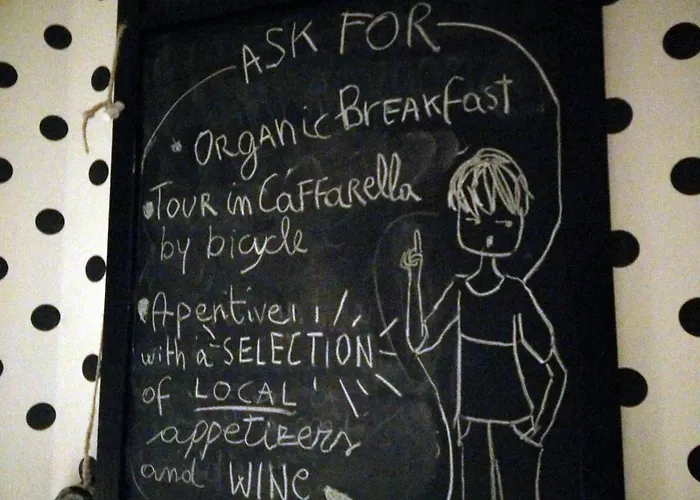 ASK FOR
• ORGANIC BREAKFAST
• TOUR in CAFFARELLA
by bicycle
• Aperitive!!
with a SELECTION
of LOCAL
appetizers
and WINE